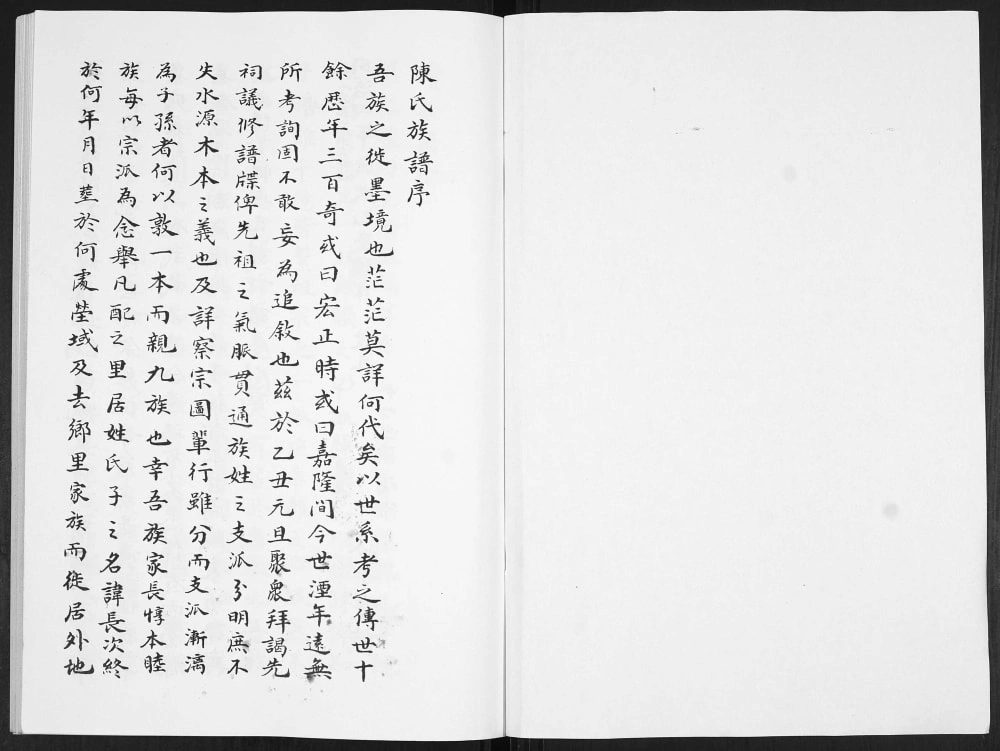 陳氏族譜序
吾族之徙墨境也茫茫莫詳何代矣以世系考之傳世十
餘歷年三百奇或曰宏正時或曰嘉隆間今世湮年遠無
所考詢固不敢妄為追敘也茲於乙丑元旦聚眾拜謁先
祠議修譜牒俾先祖之氣脈貫通族姓之支派分明庶不
失水源木本之義也及詳察宗圖輩行雖分而支派漸漓
為子孫者何以敦一本而親九族也幸吾族家長惇本睦
族每以宗派為念舉凡配之里居姓氏子之名諱長次終
於何年月日葬於何處塋域及去鄉里家族而徙居外地